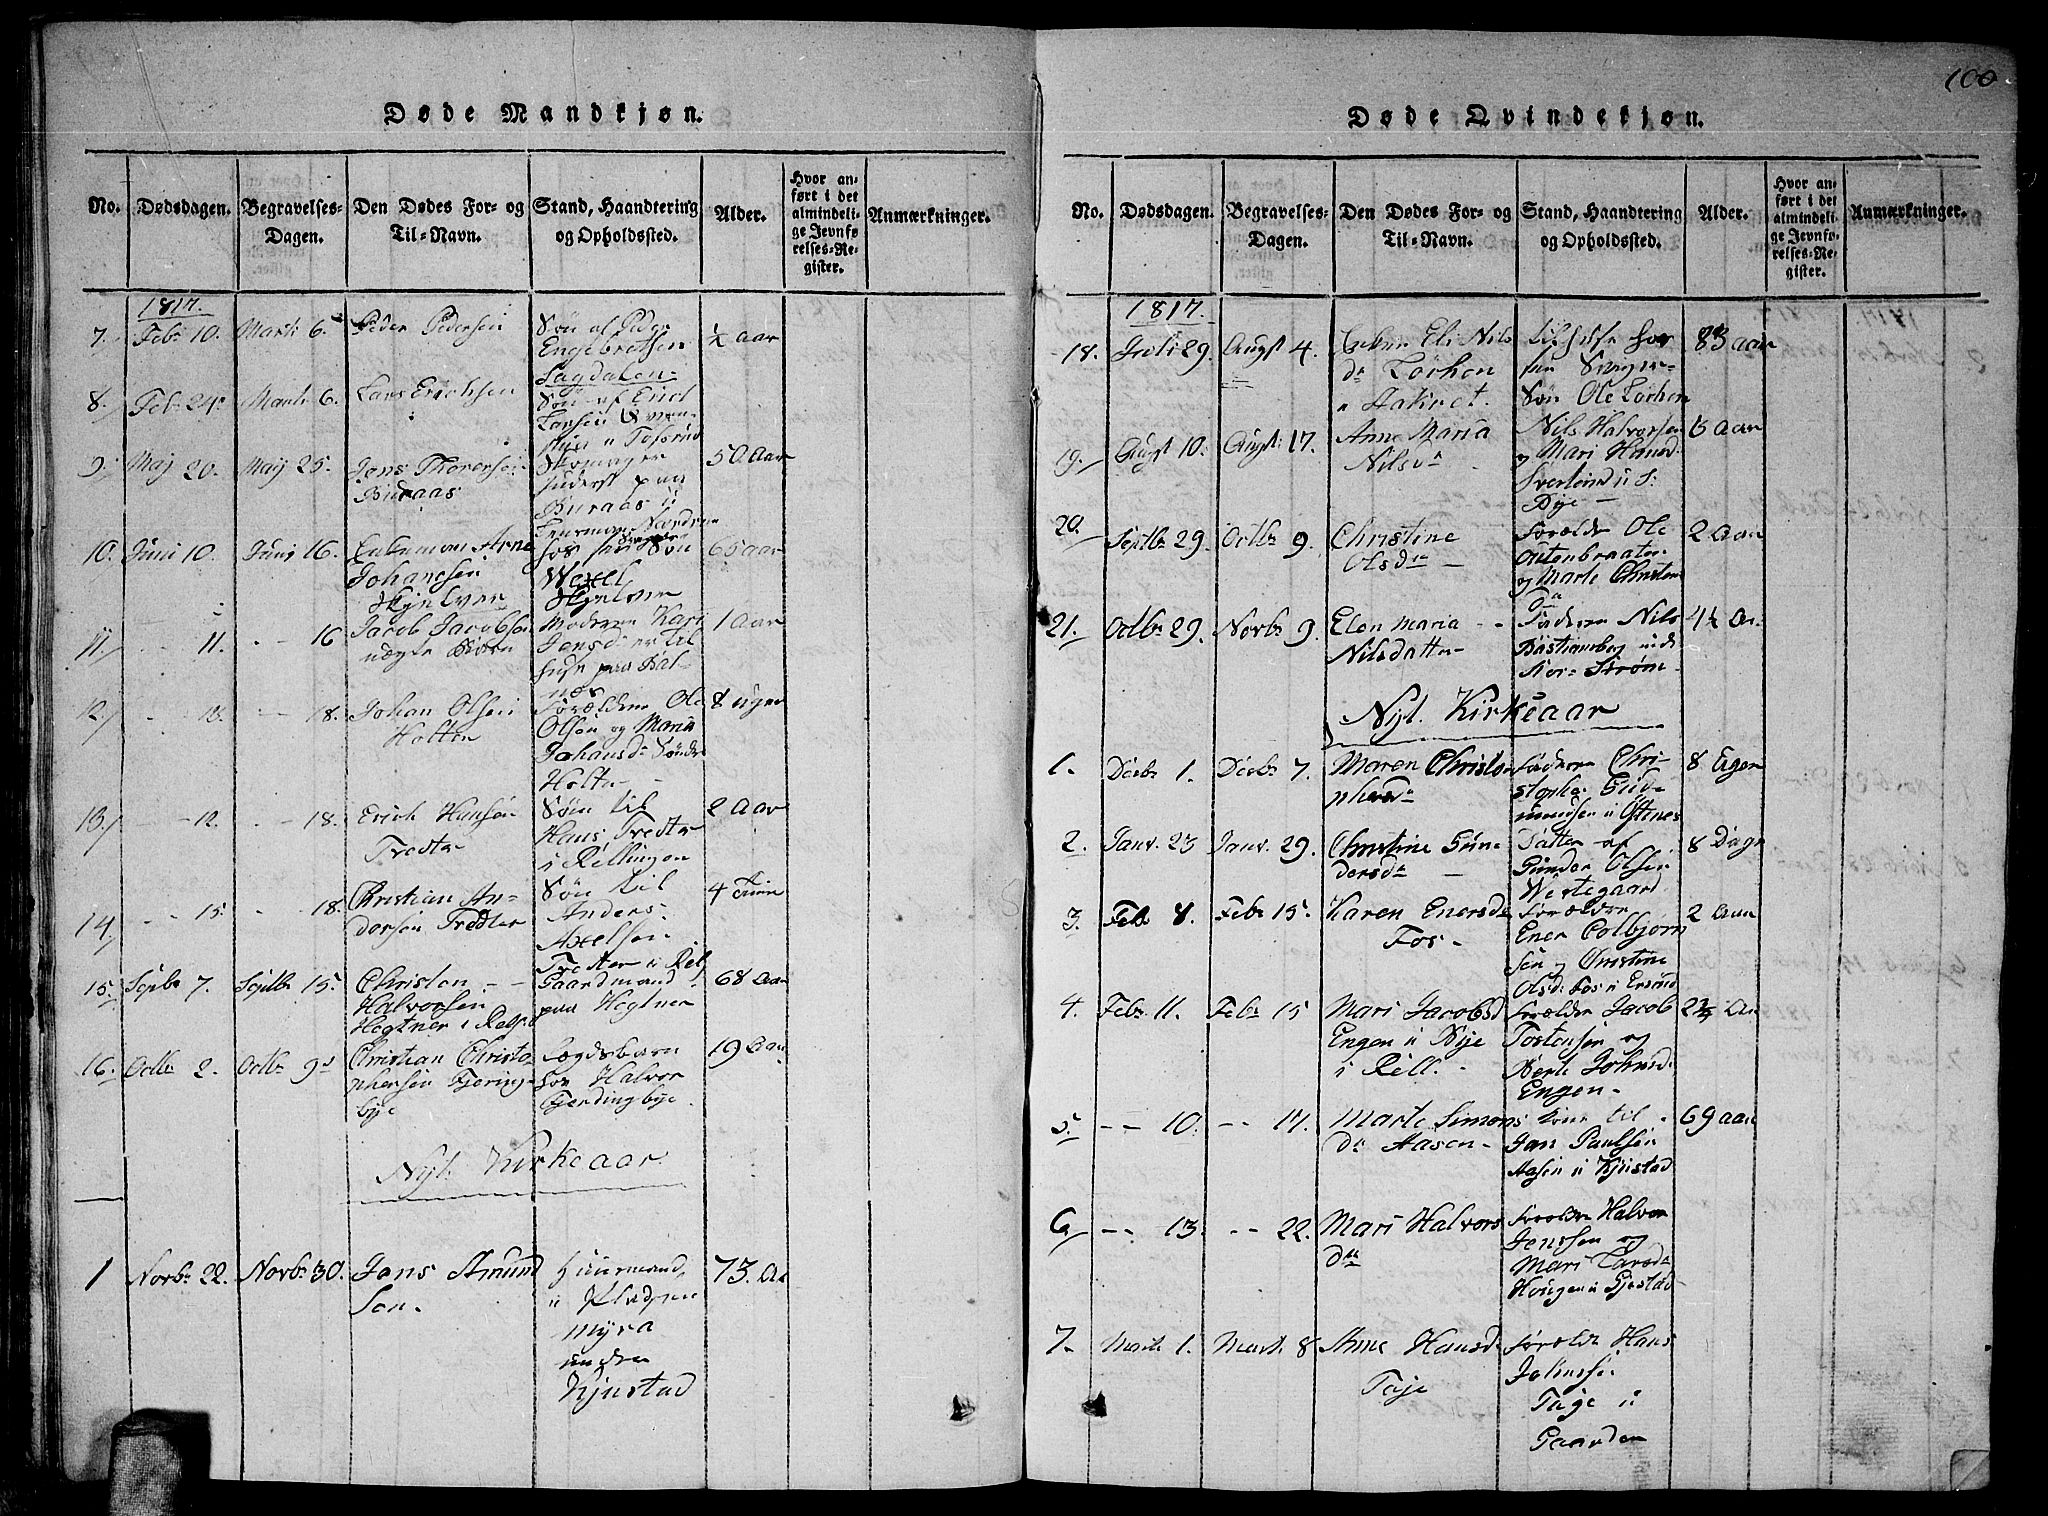 100
Døde Mandkjøn.
No. Dødsdagen. Begravelses-Dagen. Den Dødes For- og Til-Navn. Stand, Haandtering og Opholdssted. Alder. Hvor anført i det almindelige Jevnførelses-Register. Anmærkninger.
1817.
7. Febr 10. Marti 6. Peder Pedersen
Søn af Peder
Engebretsen
Sagdalen
½ aar
8. Febr 24. Marti 6. Lars Erichsen
Søn af Erich
Larsen
9. Maj 20. Maij 25. Jens
Buraas
paa
Buraas
50 Aar
10. Juni 10. Junij 16. Enkemand Arne
Johansen
Skjelver
hos sin Søn
Wexel
Skjelver
65 aar
11. - - 11. - - 16 Jacob Jacobsen
uægte Barn
Moderen Kari
Jensdr er til
huse paa Bal-
næs
1 Aar
12. - - - - 18. Johan Olsen
Holter
Forældre Ole
Olsen og Maria
Johansdr Søndre
Holter
8 uger
13. - - 12. - - 18. Erich Hansen
Tredter
Søn til
Hans Tredter
i Rellingen
2 Aar
14. - - 15. - - 18. Christian An-
dersen Tredter
Søn til
Anders
Axelsen
Tredter i Rell
4
15. Septbr 7. Septbr 15. Christen - -
Halvorsen
Hegtner i Rell
Gaardmand
paa Hegtner
68 Aar
16. Octbr 2. Octbr 9. Christian Christo-
phersen Fjering-
bye
Lægdsbarn
hos Halvor
Fjerdingbye
19 Aar
Nyt Kirkeaar
1 Novbr 22. Novbr 30. Jens Amund
Sen.
Huusmand
i Pladsen
Myra
under
Kjustad
73. Aar
Døde Qvindekjøn.
No. Dødsdagen. Begravelses-Dagen. Den Dødes For- og Til-Navn. Stand, Haandtering og Opholdssted. Alder. Hvor anført i det almindelige Jevnførelses-Register. Anmærkninger.
1817.
18. Juli 29. Augst 4. Enken Eli Nils
dr Lørhen
til huse hos
sin Sviger-
Søn Ole Lørhen
83 aar
19. Augst 10. Augst 17. Anne Maria
Nilsdr
Nils Halvorsen
og Mari Hansd
Bye
6 Aar
20. Septbr 29. Octbr 9. Christine
Olsdr
Forældre Ole
Østenbraaten
og Marte Christens
Dr
2 Aar
21. Octbr 29. Novbr 9. Elen Maria - -
Nilsdatter
Faderen Nils
Bastianberg under
Nor- Strøm
4½ Aar
Nyt Kirkeaar
1. Decbr 1. Decbr 7. Maren Christo
phersdr
Faderen Chri-
stopher Gud-
mundsen i Østenes
8 Uger
2. Janv. 23 Janv. 29. Christine Gun-
dersdr
Datter af
Gunder Olsen
Westegaard
8 Dage
3. Febr 8. Febr 15. Karen Enersdr
Fos -
Forældre
Ener Colbjørn
sen og Christine
Olsdr Fos i
2 Aar
4. Febr 11. Febr 15 Mari Jacobsd
Engen i Bye
i Rell.
Forældre Jacob
Tostensen og
Berte Johnsd
Engen
Aar
5. - - 10. - - 17. Marte Simons
dr Aasen
Kone til
Jan Paulsen
Aasen i Kjustad
69 aar
6 - - 13. - - 22. Mari Halvors
dr
Forældre Halvor
Jenssen og
Mari Larsdr
Haugen i Gjestad
7. Marti 1. Marti 8 Anne Hansd
Taje
Forældre Hans
Johnssen
Tage i
Gaarden